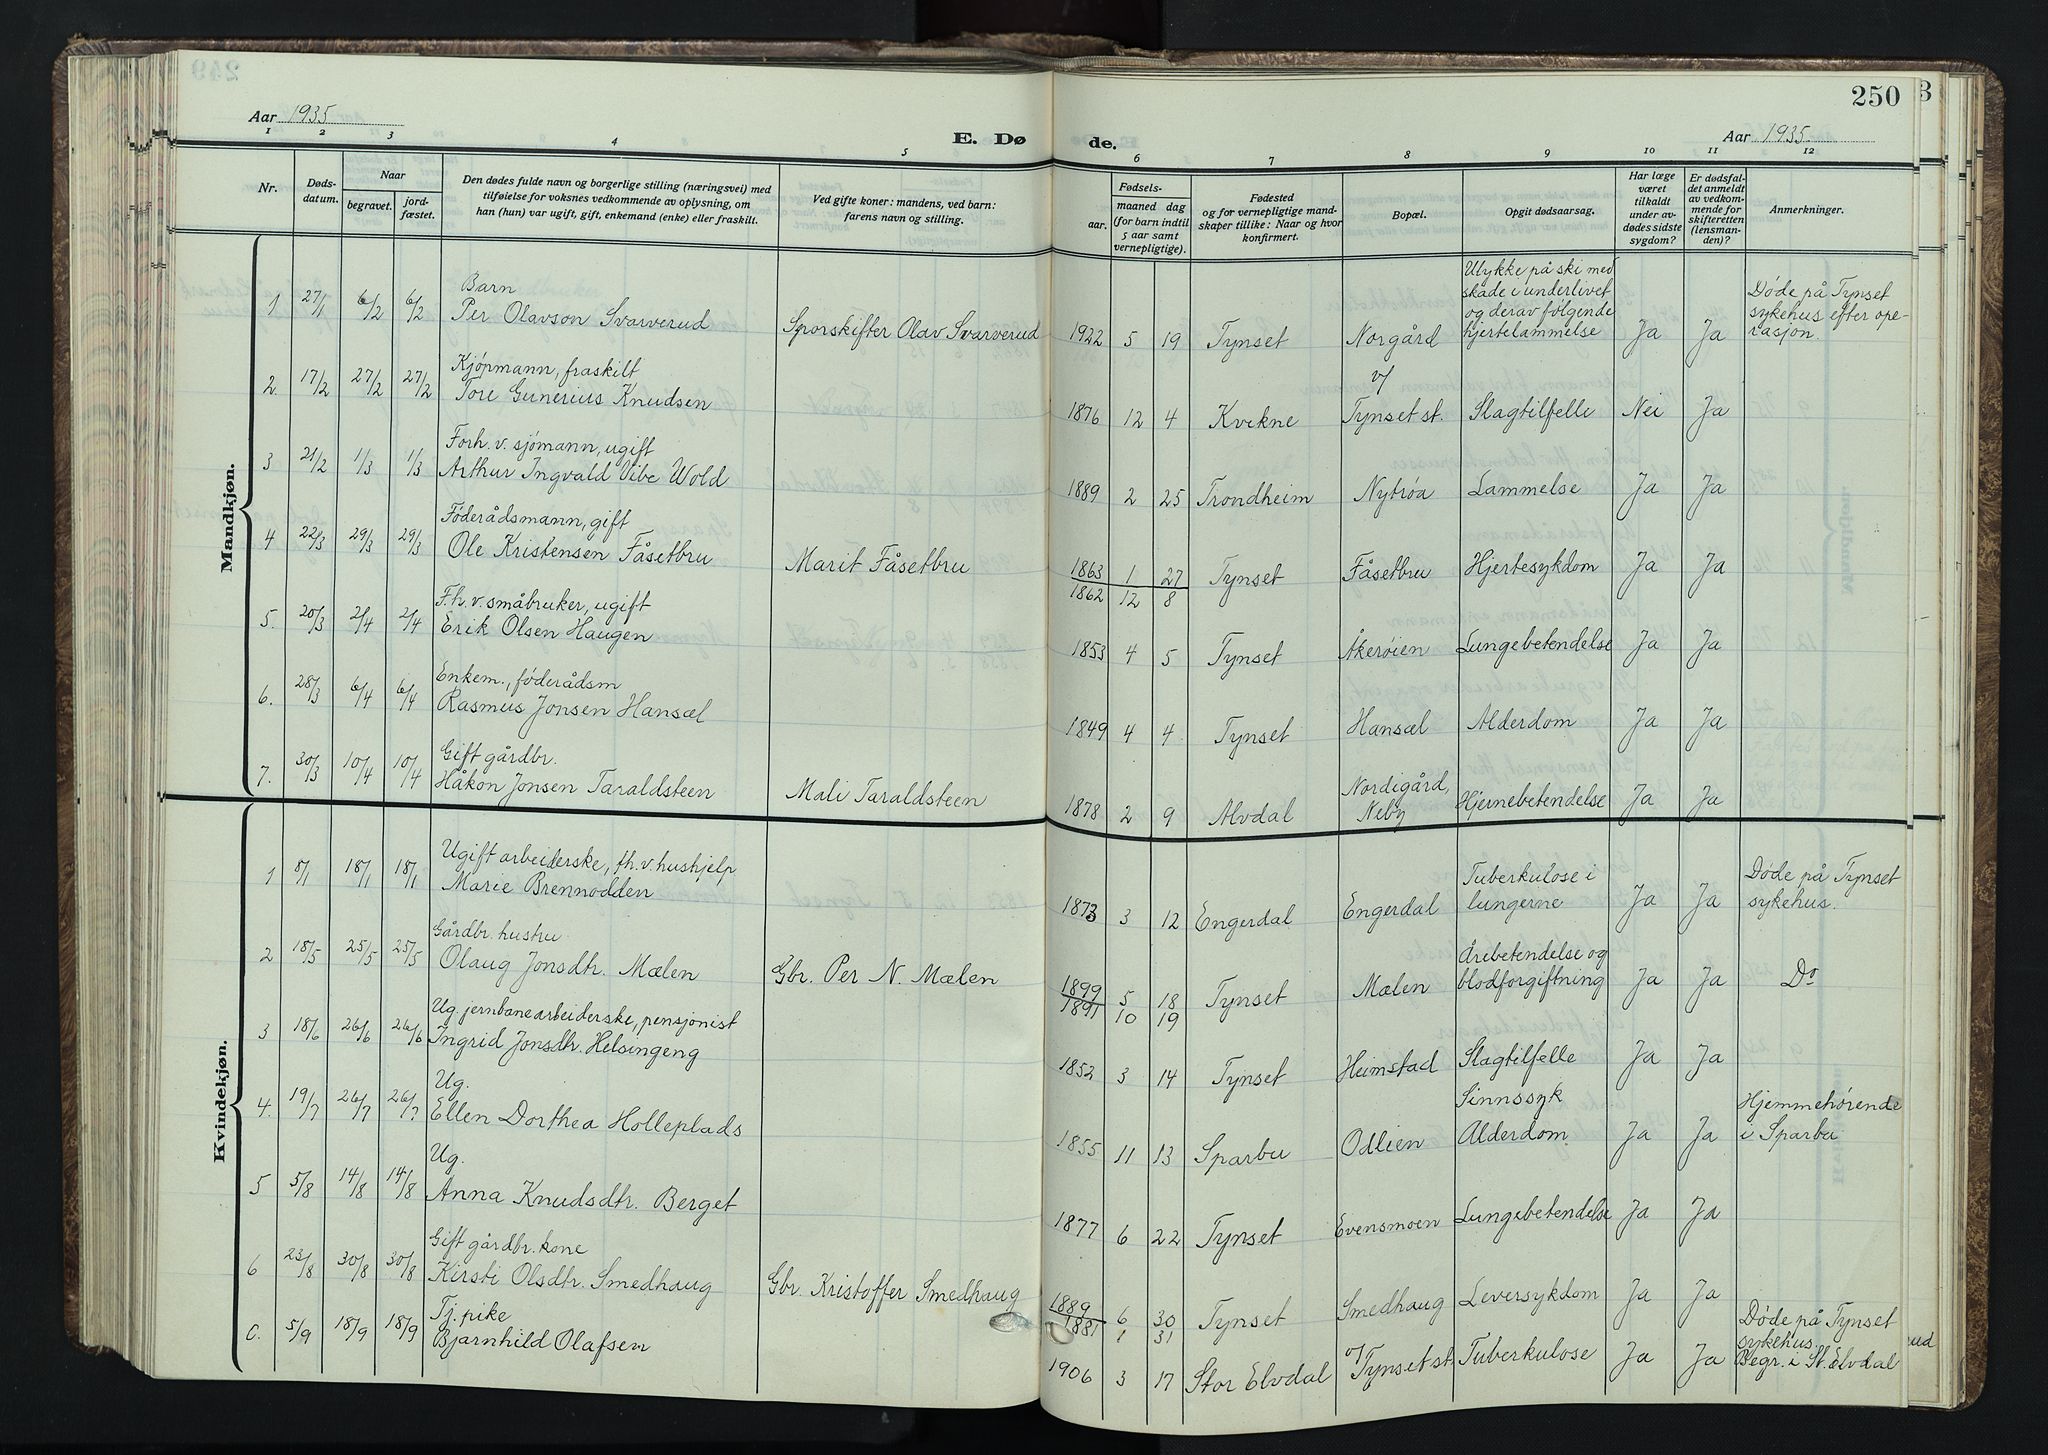 250
Aar 1935
E. Dø de.
Aar 1935
1 2 3 4 5 6 7 8 9 10 11 12
Nr.
Døds-
datum.
Naar
begravet.
jord-
fæstet.
Den dødes fulde navn og borgerlige stilling (næringsvei) med
tilføielse for voksnes vedkommende av oplysning, om
han (hun) var ugift, gift, enkemand (enke) eller fraskilt.
Ved gifte koner: mandens, ved barn:
farens navn og stilling.
Fødsels-
aar.
maaned dag
(for barn indtil
5 aar samt
vernepligtige).
Fødested
og for vernepligtige mand-
skaper tillike: Naar og hvor
konfirmert.
Bopæl.
Opgit dødsaarsag.
Har læge
været
tilkaldt
under av-
dødes sidste
sygdom?
Er dødsfal-
det anmeldt
av vedkom-
mende for
skifteretten
(lensman-
den)?
Anmerkninger.
Mandkjøn.
Barn
1 27/1 6/2 6/2 Per Olavson Svarverud Sporskifter Olav Svarverud 1922 5 19 Tynset Norgård
Ulykke på ski med
skade i underlivet
og derav følgende
hjertelammelse
Ja Ja
Døde på Tynset
sykehus efter ope-
rasjon.
Kjøpmann, fraskilt
2 17/2 27/2 27/2 Tore Gunerius Knudsen 1876 12 4 Kvikne
v/
Tynset st. Slagtilfelle Nei Ja
Forh. v. sjømann, ugift
3 21/2 1/3 1/3 Arthur Ingvald Vibe Wold 1889 2 25 Trondheim Nytrøa Lammelse Ja Ja
Føderådsmann, gift
4 22/3 29/3 29/3 Ole Kristensen Fåsetbru Marit Fåsetbru 1863 1 27 Tynset Fåsetbru Hjertesykdom Ja Ja
1862 12 8
F.h.v. småbruker, ugift
5. 20/3 2/4 2/4 Erik Olsen Haugen 1853 4 5 Tynset Åkerøien Lungebetendelse Ja Ja
Enkem., føderådsm
6. 28/3 6/4 6/4 Rasmus Jonsen Hansæl 1849 4 4 Tynset Hansæl Alderdom Ja Ja
Gift gårdbr.
7. 30/3 10/4 10/4 Håkon Jonsen Taraldsteen Mali Taraldsteen 1878 2 9 Alvdal
Nordigård,
Neby
Hjernebetendelse Ja Ja
Kvindekjøn.
Ugift arbeiderske, fh.v. hushjelp
1 8/1 18/1 18/1 Marie Brennodden 1873 3 12 Engerdal Engerdal
Tuberkulose i
lungerne
Ja Ja
Døde på Tynset
sykehus.
Gårdbr. hustru
2 18/5 25/5 25/5 Olaug Jonsdtr. Mælen Gbr. Per N. Mælen 1899 5 18 Tynset Mælen
Årebetendelse og
blodforgiftning
Ja Ja Do
1891 10 19
Ug. jernbanearbeiderske, pensjonist
3 18/6 26/6 26/6 Ingrid Jonsdtr. Helsingeng 1852 3 14 Tynset Heimstad Slagtilfelle Ja Ja
Ug.
4. 19/7 26/7 26/7 Ellen Dorthea Holleplads 1855 11 13 Sparbu Odlien
Sinnssyk
Alderdom
Ja Ja
Hjemmehørende
i Sparbu
Ug.
5 5/8 14/8 14/8 Anna Knudsdtr. Berget 1877 6 22 Tynset Evensmoen Lungebetendelse Ja Ja
Gift gårdbr. kone
6 23/8 30/8 30/8 Kirsti Olsdtr. Smedhaug Gbr. Kristoffer Smedhaug 1889 6 30 Tynset Smedhaug Leversykdom Ja Ja
1881 1 31
Tj. pike
C. 5/9 18/9 18/9 Bjarnhild Olafsen 1906 3 17 Stor Elvdal
v/
Tynset st. Tuberkulose Ja Ja
Døde på Tynset
sykehus.
Begr. i St. Elvdal